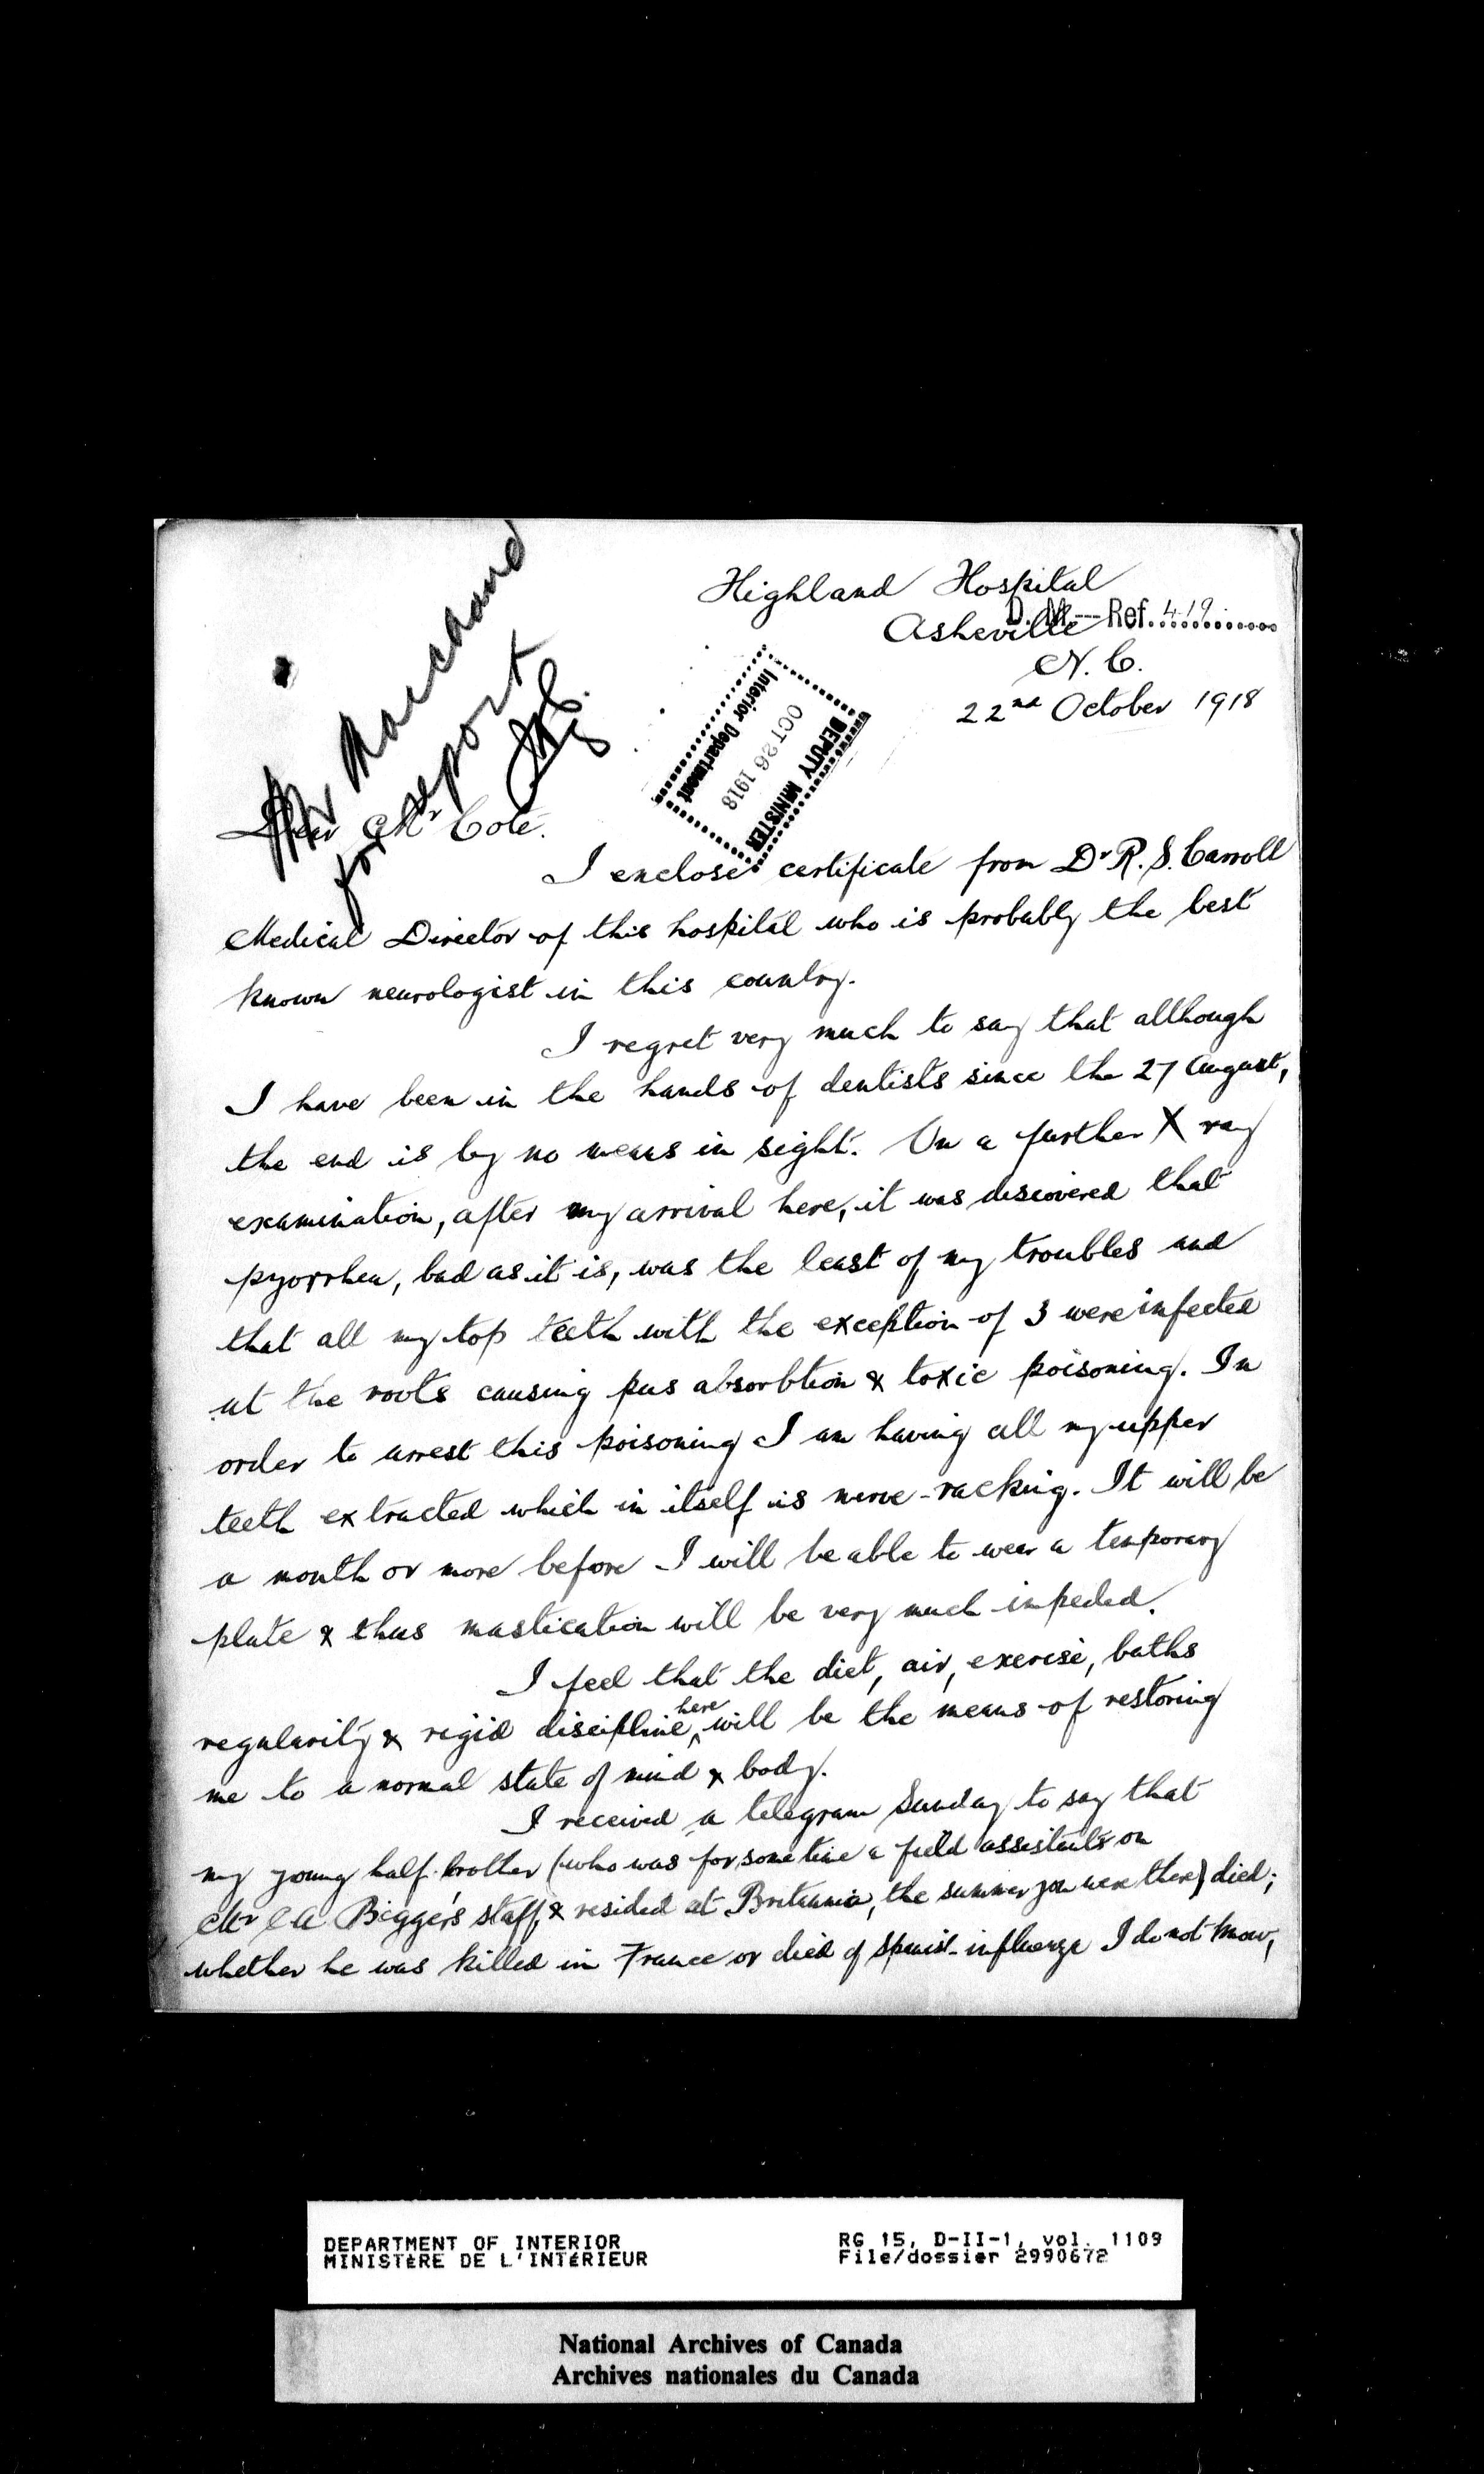 Highland Hospital
D. M.--- Ref. 419
Asheville
N. C.
22nd October 1918
Mr Marchand
for report
DEPUTY MINISTER
OCT 26 1918
Interior Department
Dear Mr Cote.
I enclose certificate from Dr R. S. Carroll
Medical Director of this hospital who is probably the best
known neurologist in this country.
I regret very much to say that although
I have been in the hands of dentists since the 27 August,
the end is by no means in sight. On a further X ray
examination, after my arrival here, it was discovered that
pyorrhea, bad as it is, was the least of my troubles and
that all my top teeth with the exception of 3 were infected
at the roots causing pus absorbtion & toxic poisoning. In
order to arrest this poisoning I am having all my upper
teeth extracted which in itself is nerve-racking. It will be
a month or more before I will be able to wear a temporary
plate & thus mastication will be very much impeded.
I feel that the diet, air, exercise, baths
regularity & rigid discipline here will be the means of restoring
me to a normal state of mind & body.
I received a telegram Sunday to say that
my young half-brother (who was for some time a field assistant on
Mr C A Bigger's staff, & resided at Britannia, the summer you were there) died;
whether he was killed in France or died of Spanish influenza I do not know,
DEPARTMENT OF INTERIOR
MINISTÈRE DE L'INTÉRIEUR
RG 15, D-II-1, vol. 1109
File/dossier 2990672
National Archives of Canada
Archives nationales du Canada